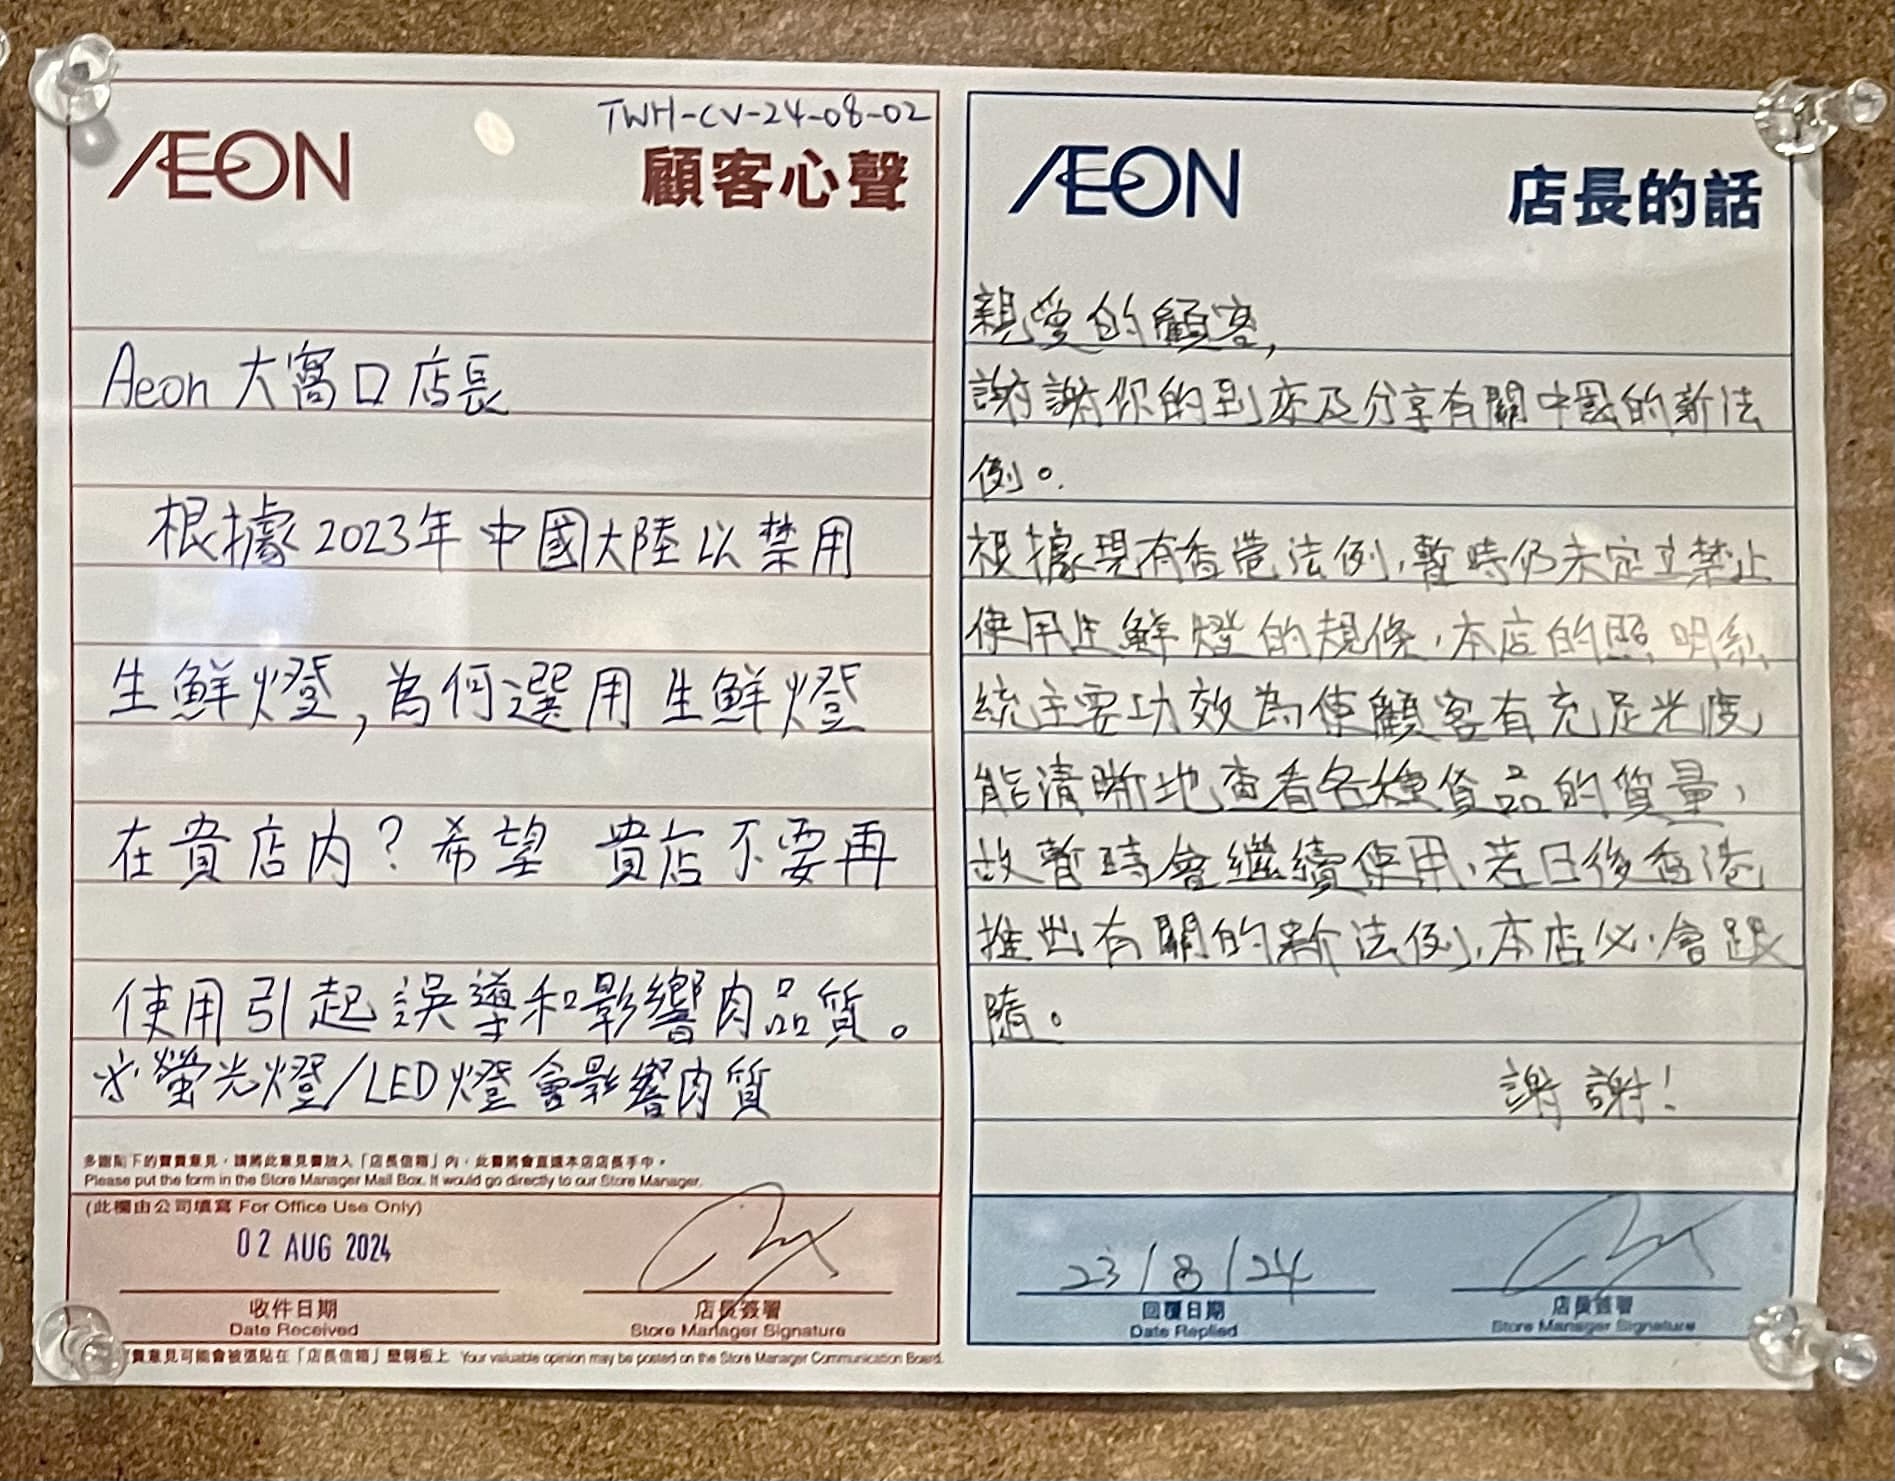 TWH-CV-24-08-02
ÆON
顧客心聲
Aeon 大窩口店長
根據2023年中國大陸以禁用
生鮮燈,為何選用生鮮燈
在貴店內?希望 貴店不要再
使用引起誤導和影響肉品質。
螢光燈/LED燈會影響肉質
多謝閣下的寶貴意見,請將此意見書放入「店長信箱」內,此書將會直達本店店長手中。
Please put the form in the Store Manager Mail Box. It would go directly to our Store Manager.
(此欄由公司填寫 For Office Use Only)
02 AUG 2024
收件日期
Date Received
店長簽署
Store Manager Signature
貴意見可能會被張貼在「店長信箱」壁報板上 Your valuable opinion may be posted on the Store Manager Communication Board.
ÆON
店長的話
親愛的顧客,
謝謝你的到來及分享有關中國的新法
例。
根據現有香港法例,暫時仍未定立禁止
使用生鮮燈的規條,本店的照明系
統主要功效為使顧客有充足光度
能清晰地查看各種貨品的質量,
故暫時會繼續使用,若日後香港
推出有關的新法例,本店必會跟
隨。
謝謝!
23/8/24
回覆日期
Date Replied
店長簽署
Store Manager Signature